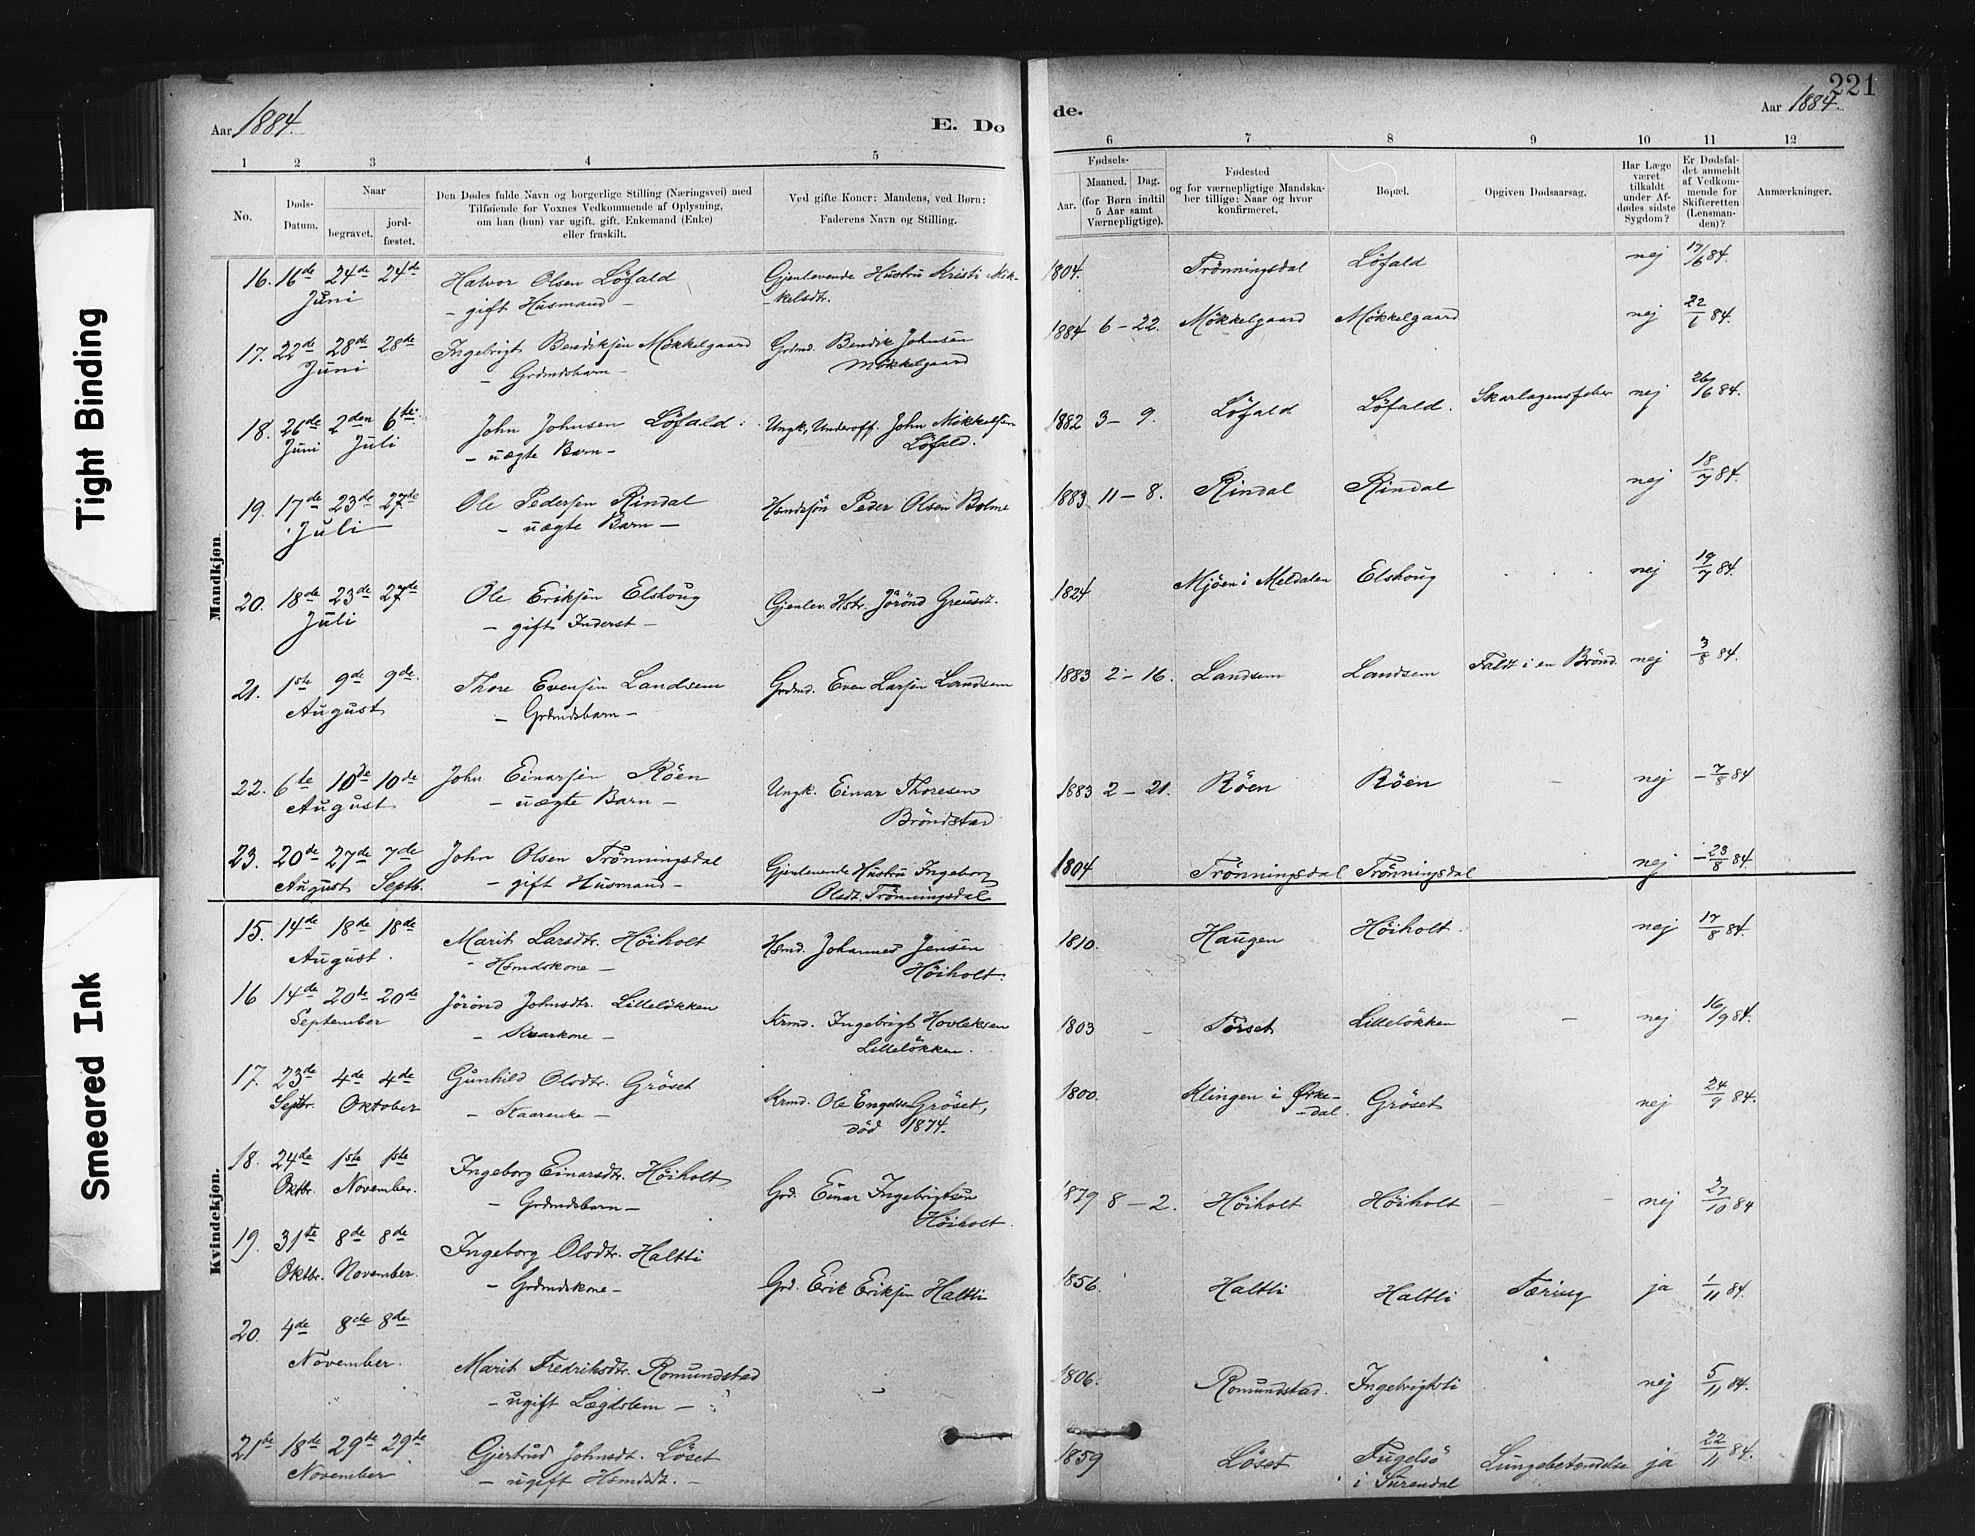 221
Aar 1884.
E. Dode.
Aar 1884.
1 2 3 4 5 6 7 8 9 10 11 12
No.
Døds-Datum.
Naar
begravet.
jord-fæstet.
Den Dødes fulde Navn og borgerlige Stilling (Næringsvei) med
Tilføiende for Voxnes Vedkommende af Oplysning,
om han (hun) var ugift, gift, Enkemand (Enke)
eller fraskilt.
Ved gifte Koner: Mandens, ved Børn:
Faderens Navn og Stilling.
Fødsels-
Aar.
Maaned. Dag.
(for Børn indtil
5 Aar samt
Værnepligtige).
Fødested
og for værnepligtige Mandska-
ber tillige: Naar og hvor
konfirmeret.
Bopæl.
Opgiven Dødsaarsag.
Har Læge
været
tilkaldt
under Af-
dødes sidste
Sygdom?
Er Dødsfal-
det anmeldt
af Vedkom-
mende for
Skifteretten
(Lensman-
den)?
Anmærkninger.
Tight Binding
Smeared Ink
Mandkjøn.
16. 16de 24de 24de Halvor Olsen Löfald Gjenlevende Hustru Kristi Mik- 1804. Trönningsdal Löfald nej 17/6 84.
Juni - gift Husmand - -kelsdt.
17. 22de 28de 28de Ingebrigt Bendiksen Mökkelgaard Grdmd. Bendik Johnsen 1884 6 - 22. Mökkelgaard Mökkelgaard nej 22/6 84.
Juni - Grdmdsbarn - Mökkelgaard
18. 26de 2den 6te John Johnsen Löfald Ungk, Underoff. John Mikkelsen 1882 3 - 9. Löfald Löfald. Skarlagensfeber nej 26/6 84.
Juni Juli - uægte Barn - Löfald.
19. 17de 23de 27de Ole Pedersen Rindal Hsmdsön Peder Olsen Bolme 1883 11 - 8. Rindal Rindal nej 18/7 84.
Juli - uægte Barn -
20. 18de 23de 27de Ole Eriksen Elshoug Gjenlev. Hstr. Jörönd 1824 Mjöen i Meldalen Elshoug nej 19/7 84.
Juli - gift Inderst -
21. 1ste 9de 9de. Thore Evensen Landsem Grdmd. Even Larsen Landsem 1883 2 - 16. Landsem Landsem Faldt i en Brönd. nej 3/8 84.
August - Grdmdsbarn -
22. 6te 10de 10de John Einarsen Röen Ungk. Einar Thoresen 1883 2 - 21. Röen Röen nej - 7/8 84
August - uægte Barn - Bröndstad
23. 20de 27de 7de John Olsen Trönningsdal Gjenlevende Hustru Ingeborg 1804 Trönningsdal Trönningsdal nej - 23/8 84.
August Septb. - gift Husmand - Olsdt. Trönningsdal
Kvindekjøn.
15. 14de 18de 18de Marit Larsdtr. Höiholt Hsmd. Johannes Jensen 1810. Haugen Höiholt. nej 17/8 84.
August. - Hsmdskone - Höiholt.
16 14de 20de 20de Jörönd Johnsdtr. Lillelökken Krmd. Ingebrigt Hovleksen 1803 - Törset Lillelökken - nej 16/9 84.
September - Kaarkone - Lillelökken.
17. 23de 4de 4de Gunhild Olsdtr. Gröset Krmd. Ole Engelsen Gröset, 1800. Klingen i Ørke- Gröset nej 24/9 84.
Septbr. Oktober - Kaarenke - död 1874. -dal.
18. 24de 1ste 1ste Ingeborg Einarsdtr. Höiholt Grd. Einar Ingebrigtsen 1879 8 - 2. Höiholt Höiholt - nej 27/10 84
Oktbr. November. - Grdmdsbarn - Höiholt.
19. 31te 8de 8de Ingeborg Olsdtr. Haltli Grd. Erik Eriksen Haltli 1856. Haltli Haltli Tæring ja 1/11 84.
Oktbr. November. - Grdmdskone -
20. 4de 8de 8de
November. Marit Fredriksdtr. Romundstad - 1806. Romundstad. Ingebrigtsli nej 5/11 84.
- ugift Lægdslem -
21de 18de 29de 29de Gjertrud Johnsdt. Löset 1859 Löset Fugelsö Lungebetændelse ja 22/11 84.
November - ugift Hsmdsdt. - i Surendal